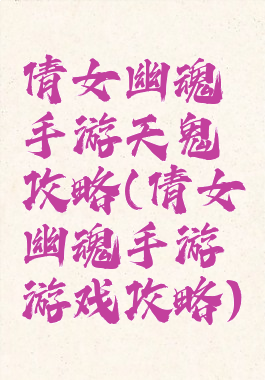 倩女幽魂
手游天鬼
攻略(倩女
幽魂手游
游戏攻略)